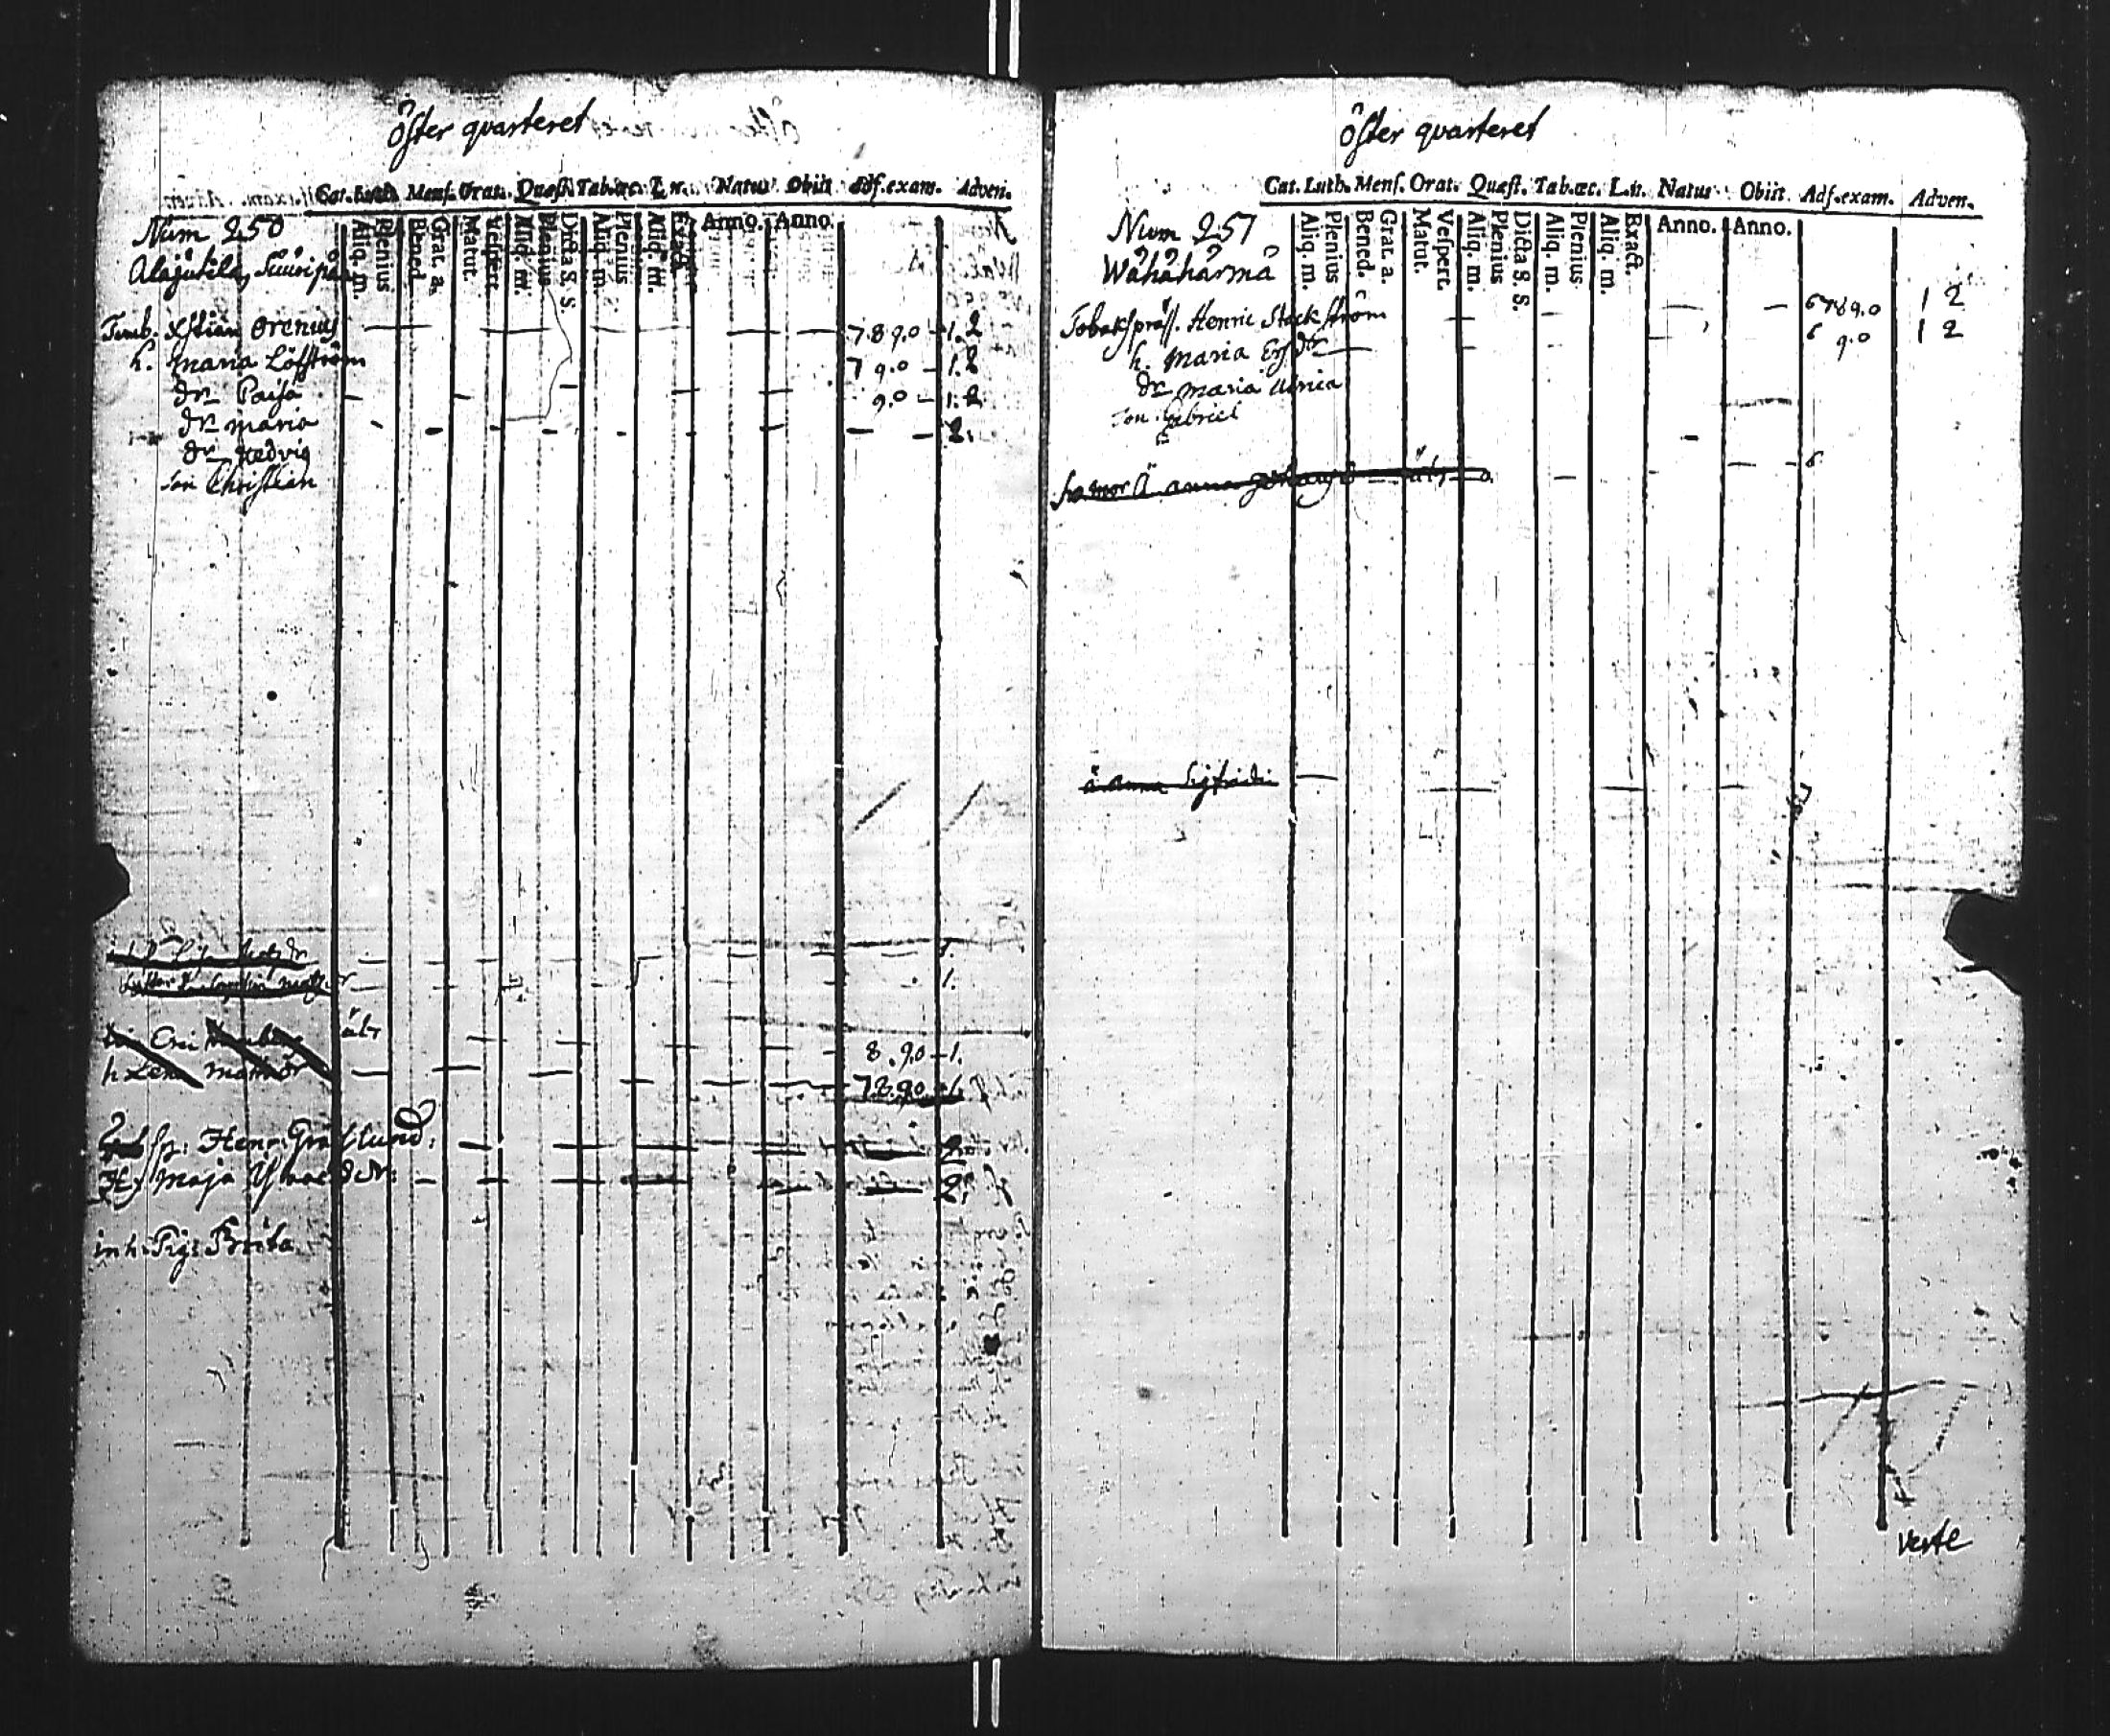 Öster quarteret
Cat. Luth. Mens. Orat. Quæst. Tab. œc. L. n. Natus Obiit Adf. exam. Adven.
Num 250
Aliq. m. Plenius Bened. Grat. a. Matut. Vespert. Aliq. m. Plenius Dicta S. S. Aliq. m. Plenius Aliq. m. Exact. Anno. Anno.
Alajutila,
Timb. Xstian Orenius 7.8 9.0 1.2
h. Maria Löfström 7 9.0 1.2
dr Caisa 9.0 1.2
dr Maria 2.
dr Hedvig
son Christian
1.
1.
Eric 8.90 1.
h Lena 7.8.90 1.
Henr: Gräslund: 2.
Maja 2.
inh: Pig: Brita
Öster quarteret
Cat. Luth. Mens. Orat. Quæst. Tab. œc. L. n. Natus Obiit Adf. exam. Adven.
Num 251
Aliq. m. Plenius Bened. Grat. a. Matut. Vespert. Aliq. m. Plenius Dicta S. S. Aliq. m. Plenius Aliq. m. Exact. Anno. Anno.
Wähähärmä
Tobakspräss. Henric Stockström 6789.0 1 2
h. Maria Ersdr 6 9.0 1 2
dr Maria Ulrica
son Gabriel
Anna 6
Anna Sigfridsd
verte